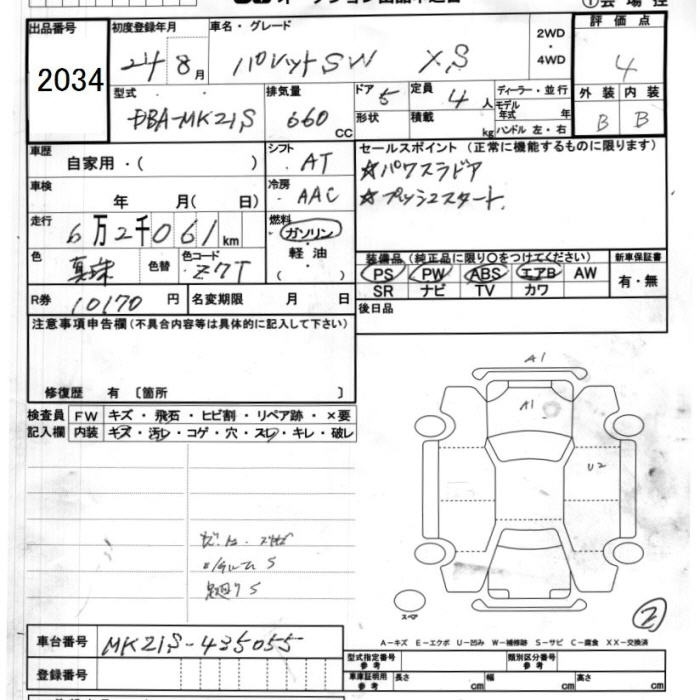 出品番号 初度登録年月 車名・グレード 2WD ・ 4WD 評価点
2034 24 8月 パレットSW XS 4
型式 排気量 ドア 5 定員 4人 ディーラー・並行 外装 内装
DBA-MK21S 660 CC 形状 積載 kg モデル年式 年 ハンドル 左・右 B B
車歴 自家用・( ) シフト AT セールスポイント (正常に機能するものに限ります)
☆パワスラドア
車検 年 月( 日) 冷房 AAC ☆プッシュスタート
走行 6万2千061km 燃料 ガソリン・軽油・( )
色 真珠 色替 色コード Z7T
装備品 (純正品に限り〇をつけてください) 新車保証書
PS PW ABS エアB AW 有・無
SR ナビ TV カワ
R券 10170円 名変期限 月 日 後日品
注意事項申告欄(不具合内容等は具体的に記入して下さい)
修復歴 有 〔箇所 〕
検査員記入欄 FW キズ・飛石・ヒビ割・リペア跡・×要
内装 キズ・汚レ・コゲ・穴・スレ・キレ・破レ
A1
A1
U2
スペア
2
車台番号 MK21S-435055
A-キズ E-エクボ U-凹み W-補修跡 S-サビ C-腐食 XX-交換済
登録番号
型式指定番号 参考 類別区分番号 参考
車庫証明用 参考 長さ cm 幅 cm 高さ cm